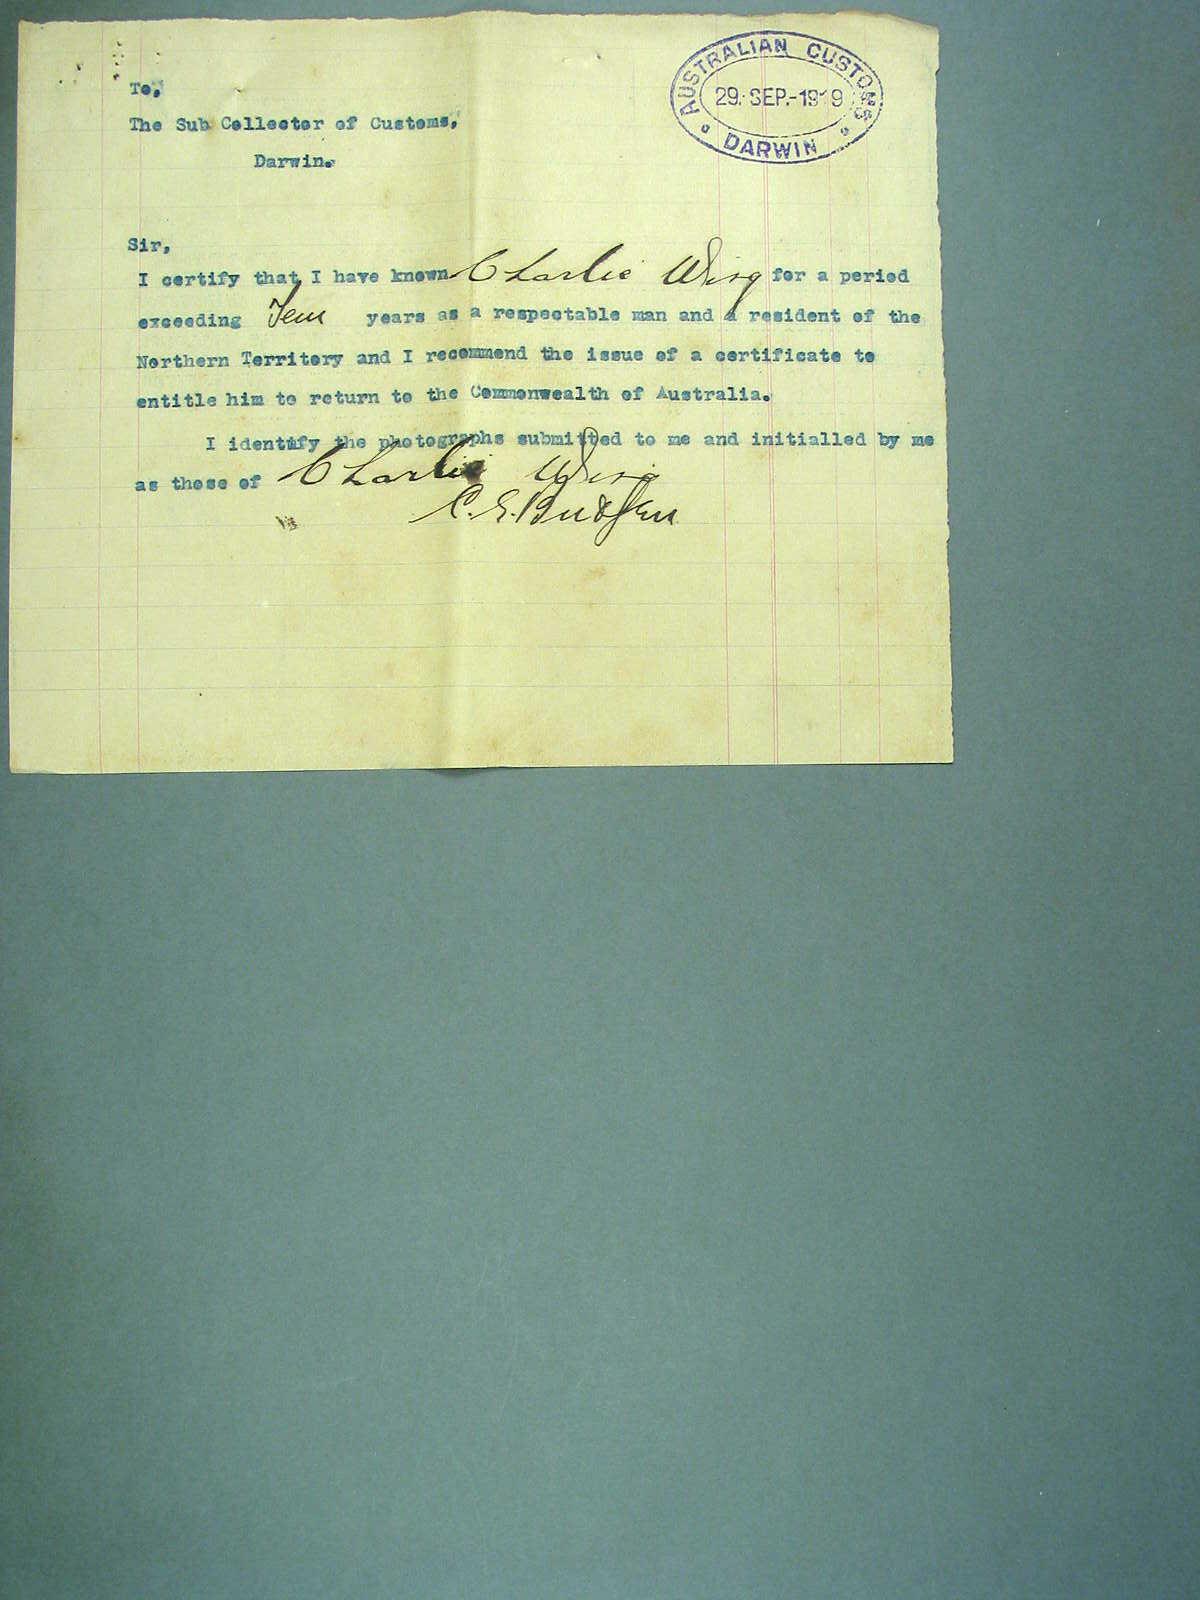 AUSTRALIAN CUSTOMS
29. SEP.-1919
DARWIN
To,
The Sub Collector of Customs,
Darwin.
Sir,
I certify that I have known Charlie Wing for a period
exceeding Ten years as a respectable man and a resident of the
Northern Territory and I recommend the issue of a certificate to
entitle him to return to the Commonwealth of Australia.
I identify the photographs submitted to me and initialled by me
as those of Charlie Wing
C. E. Budgen